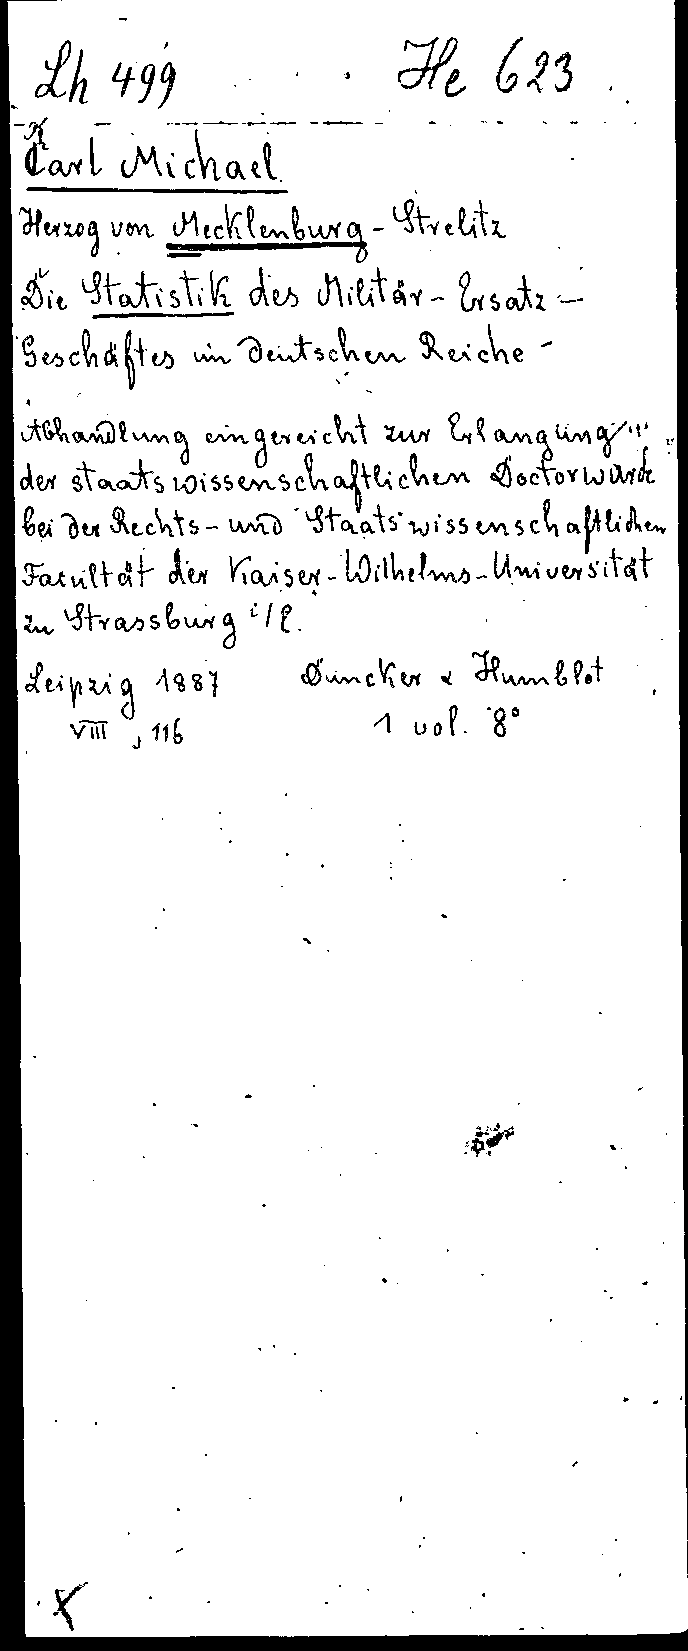 Lh 499 He 623
K
Carl Michael
Herzog von Mecklenburg-Strelitz
Die Statistik des Militär-Ersatz-
Geschäftes im deutschen Reiche -
Abhandlung eingereicht zur Erlangung
der staatswissenschaftlichen Doctorwürde
bei der Rechts- und Staatswissenschaftlichen
Facultät der Kaiser-Wilhelms-Universität
zu Strassburg i/E.
Leipzig 1887 Duncker & Humblot
VIII, 116 1 vol. 8°
X